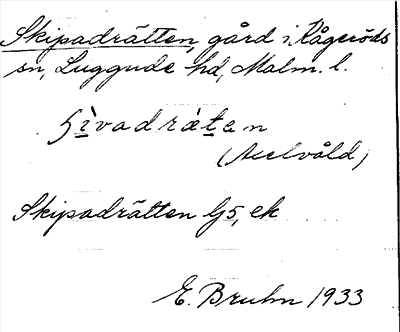 Skipadrätten, gård i Kågeröds
sn, Luggude hd, Malm. l.
(Axelvåld)
Skipadrätten G5, ek
E. Bruhn 1933